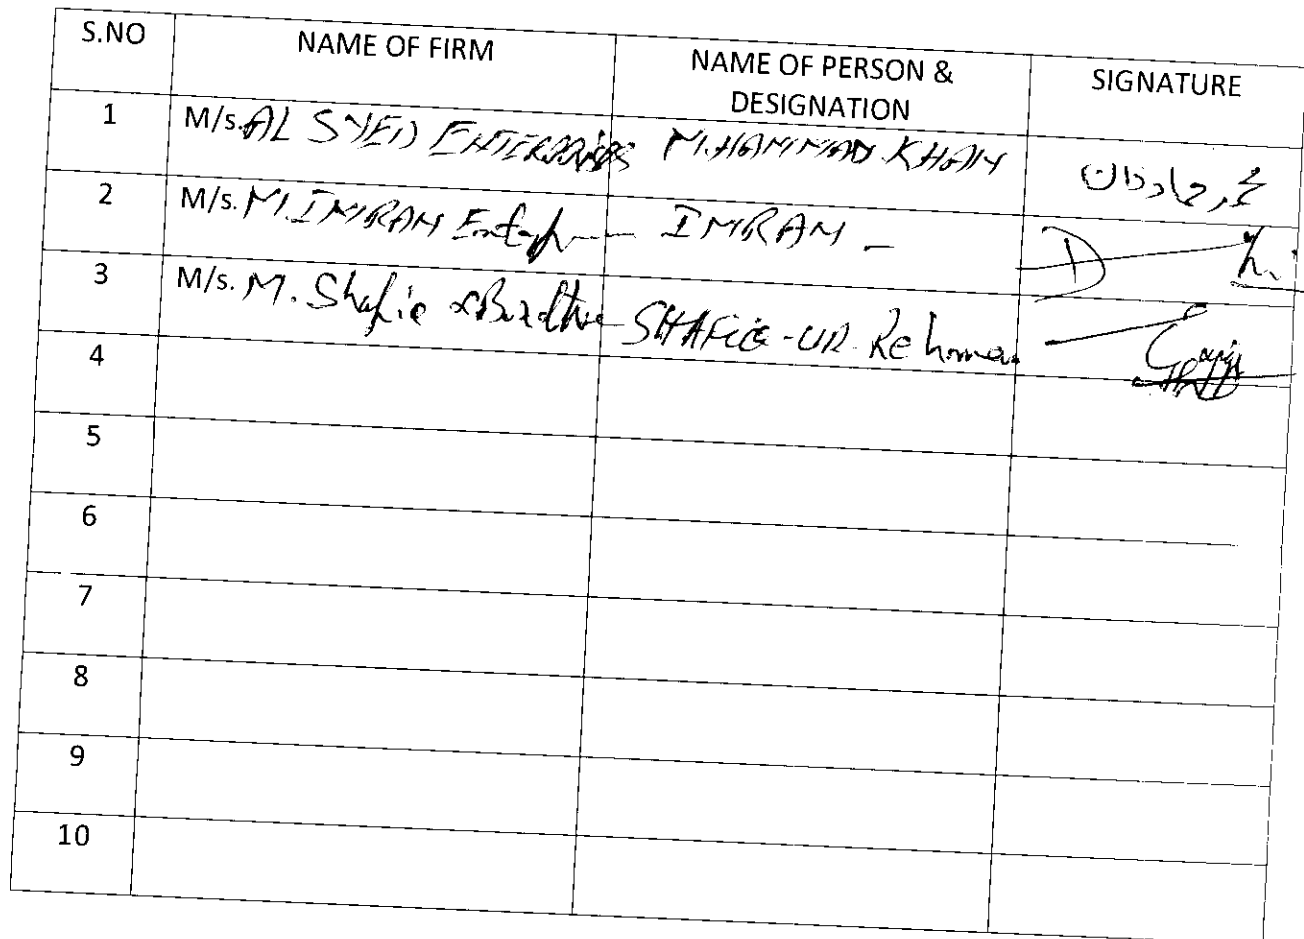 S.NO NAME OF FIRM NAME OF PERSON & DESIGNATION SIGNATURE
1 M/s. AL SYED ENTERPRISES MUHAMMAD KHAN
2 M/s. M. IMRAN IMRAN
3 M/s. M. Shafie & SHAFIE-UR-Rehman
4
5
6
7
8
9
10